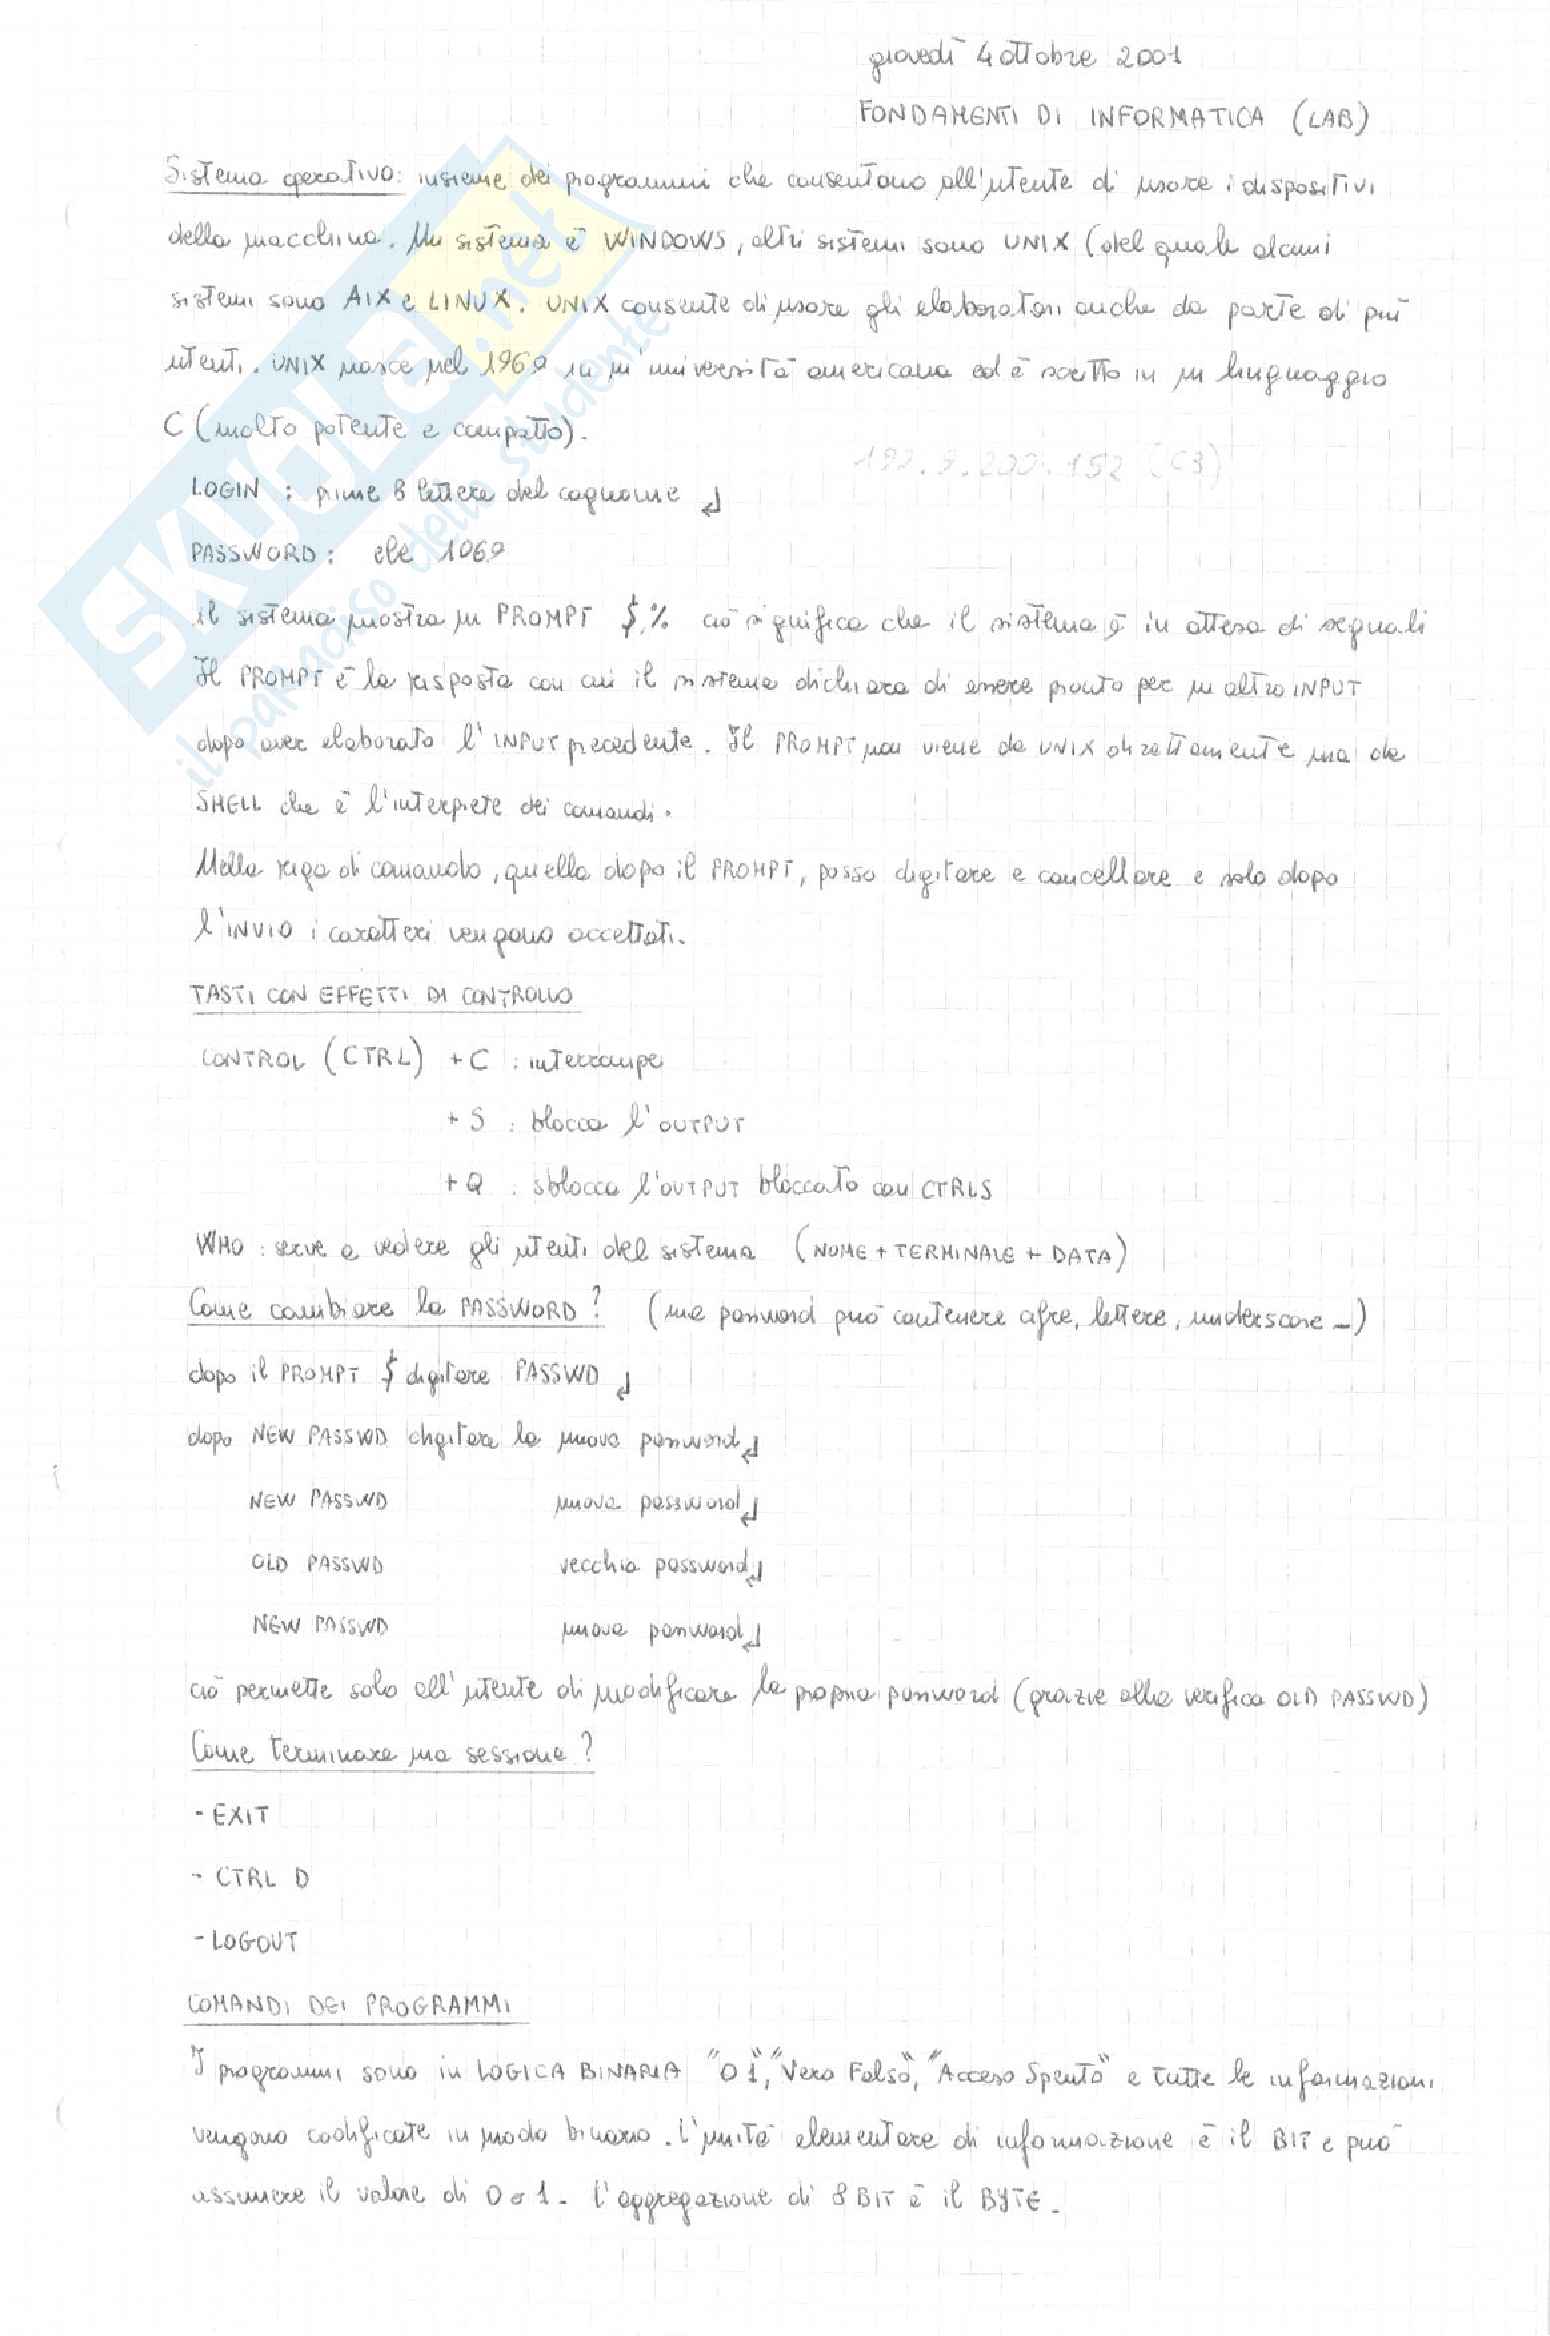 giovedì 4 ottobre 2001
FONDAMENTI DI INFORMATICA (LAB)
Sistema operativo: insieme dei programmi che consentono all'utente di usare i dispositivi
della macchina. Un sistema è WINDOWS, altri sistemi sono UNIX (del quale alcuni
sistemi sono AIX e LINUX. UNIX consente di usare gli elaboratori anche da parte di più
utenti. UNIX nasce nel 1969 in un'università americana ed è scritto in un linguaggio
C (molto potente e compatto).
192.9.200.152 (C3)
LOGIN : prime 8 lettere del cognome ↲
PASSWORD: ele 1069
il sistema mostra un PROMPT $,% ciò significa che il sistema è in attesa di segnali
Il PROMPT è la risposta con cui il sistema dichiara di essere pronto per un altro INPUT
dopo aver elaborato l'INPUT precedente. Il PROMPT non viene da UNIX direttamente ma da
SHELL che è l'interprete dei comandi.
Nella riga di comando, quella dopo il PROMPT, posso digitare e cancellare e solo dopo
l'INVIO i caratteri vengono accettati.
TASTI CON EFFETTI DI CONTROLLO
CONTROL (CTRL) + C : interrompe
+ S : blocca l'OUTPUT
+ Q : sblocca l'OUTPUT bloccato con CTRL S
WHO : serve a vedere gli utenti del sistema (NOME + TERMINALE + DATA)
Come cambiare la PASSWORD? (una password può contenere cifre, lettere, underscore _)
dopo il PROMPT $ digitare PASSWD ↲
dopo NEW PASSWD digitare la nuova password ↲
NEW PASSWD nuova password ↲
OLD PASSWD vecchia password ↲
NEW PASSWD nuova password ↲
ciò permette solo all'utente di modificare la propria password (grazie alla verifica OLD PASSWD)
Come terminare una sessione?
- EXIT
- CTRL D
- LOGOUT
COMANDI DEI PROGRAMMI
I programmi sono in LOGICA BINARIA "0 1", "Vero Falso", "Acceso Spento" e tutte le informazioni
vengono codificate in modo binario. L'unità elementare di informazione è il BIT e può
assumere il valore di 0 o 1. L'aggregazione di 8 BIT è il BYTE.
SKUOLA.net
il paradiso dello studente